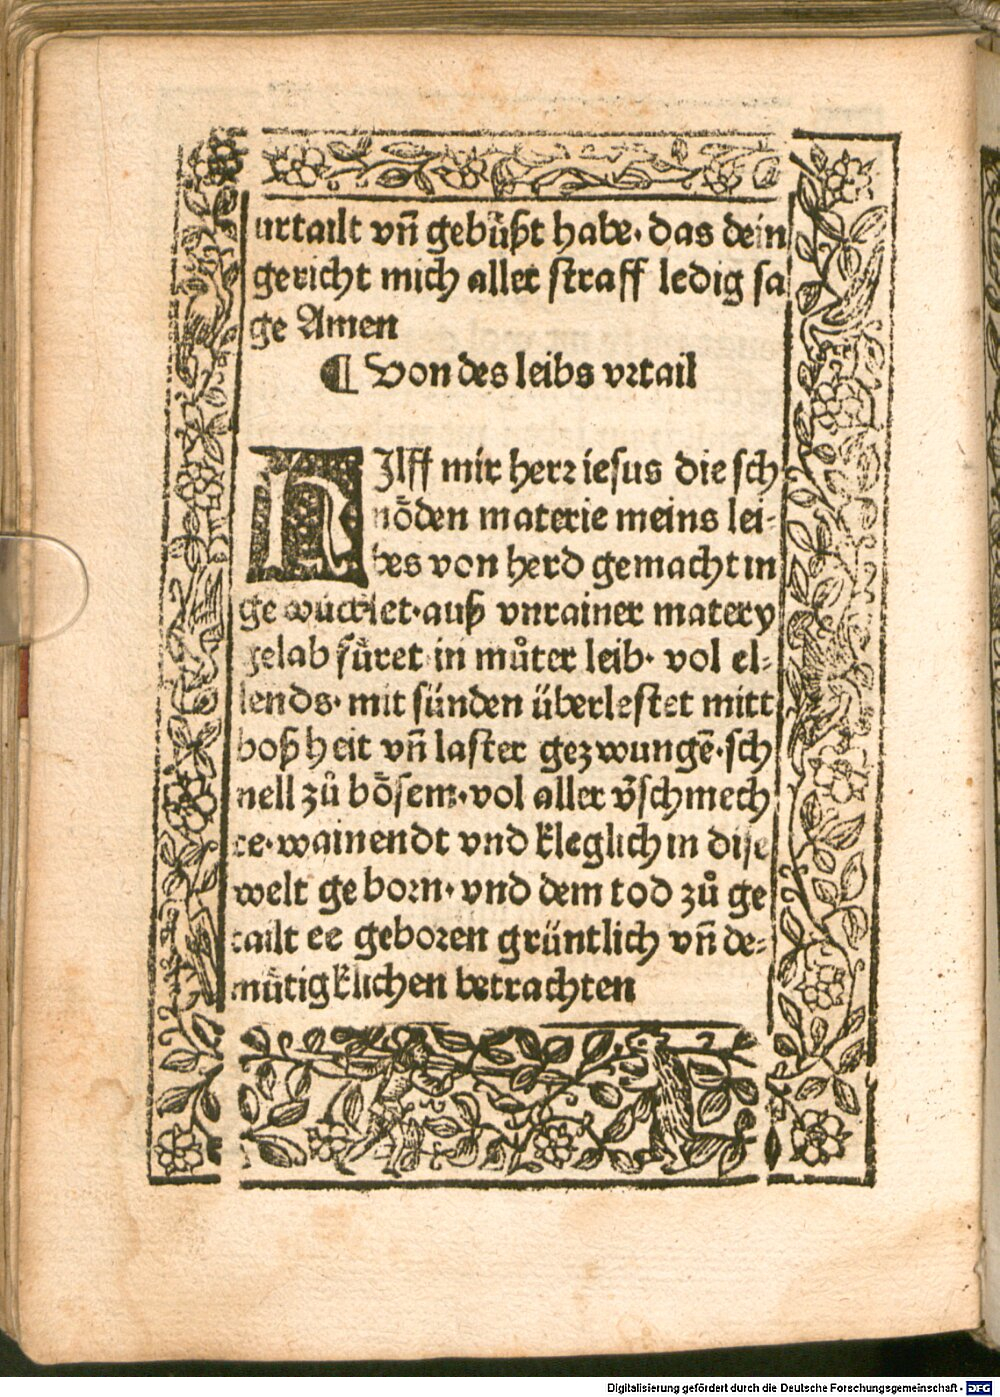 urtailt vn̄ gebüßt habe· das dein
gericht mich aller straff ledig sa
ge Amen
¶ Von des leibs vrtail
HIlff mir herr iesus die sch
nöden materie meins lei-
bes von herd gemacht in
ge wücklet·auß vnrainer matery
gelab füret in můter leib· vol el-
lends· mit sünden überlestet mitt
boßheit vn̄ laster gezwungē·sch
nell zů bösem·vol aller v̄schmech
te·wainendt vnd kleglich in dise
welt geborn· vnd dem tod zů ge
tailt ee geboren grüntlich vn̄ de-
mütigklichen betrachten
Digitalisierung gefördert durch die Deutsche Forschungsgemeinschaft - DFG